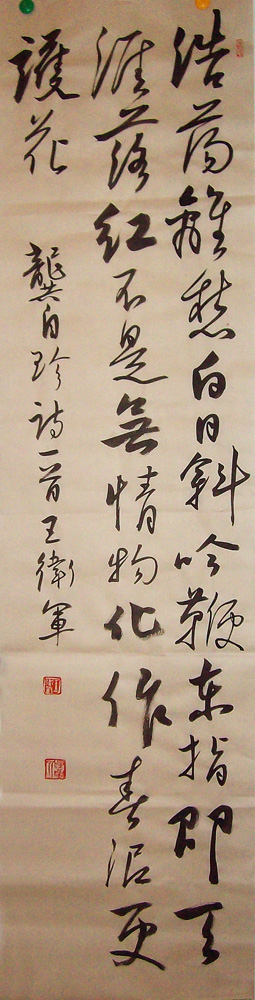 浩蕩離愁白日斜吟鞭東指即天
涯落紅不是無情物化作春泥更
護花
龔自珍詩一首王衛軍